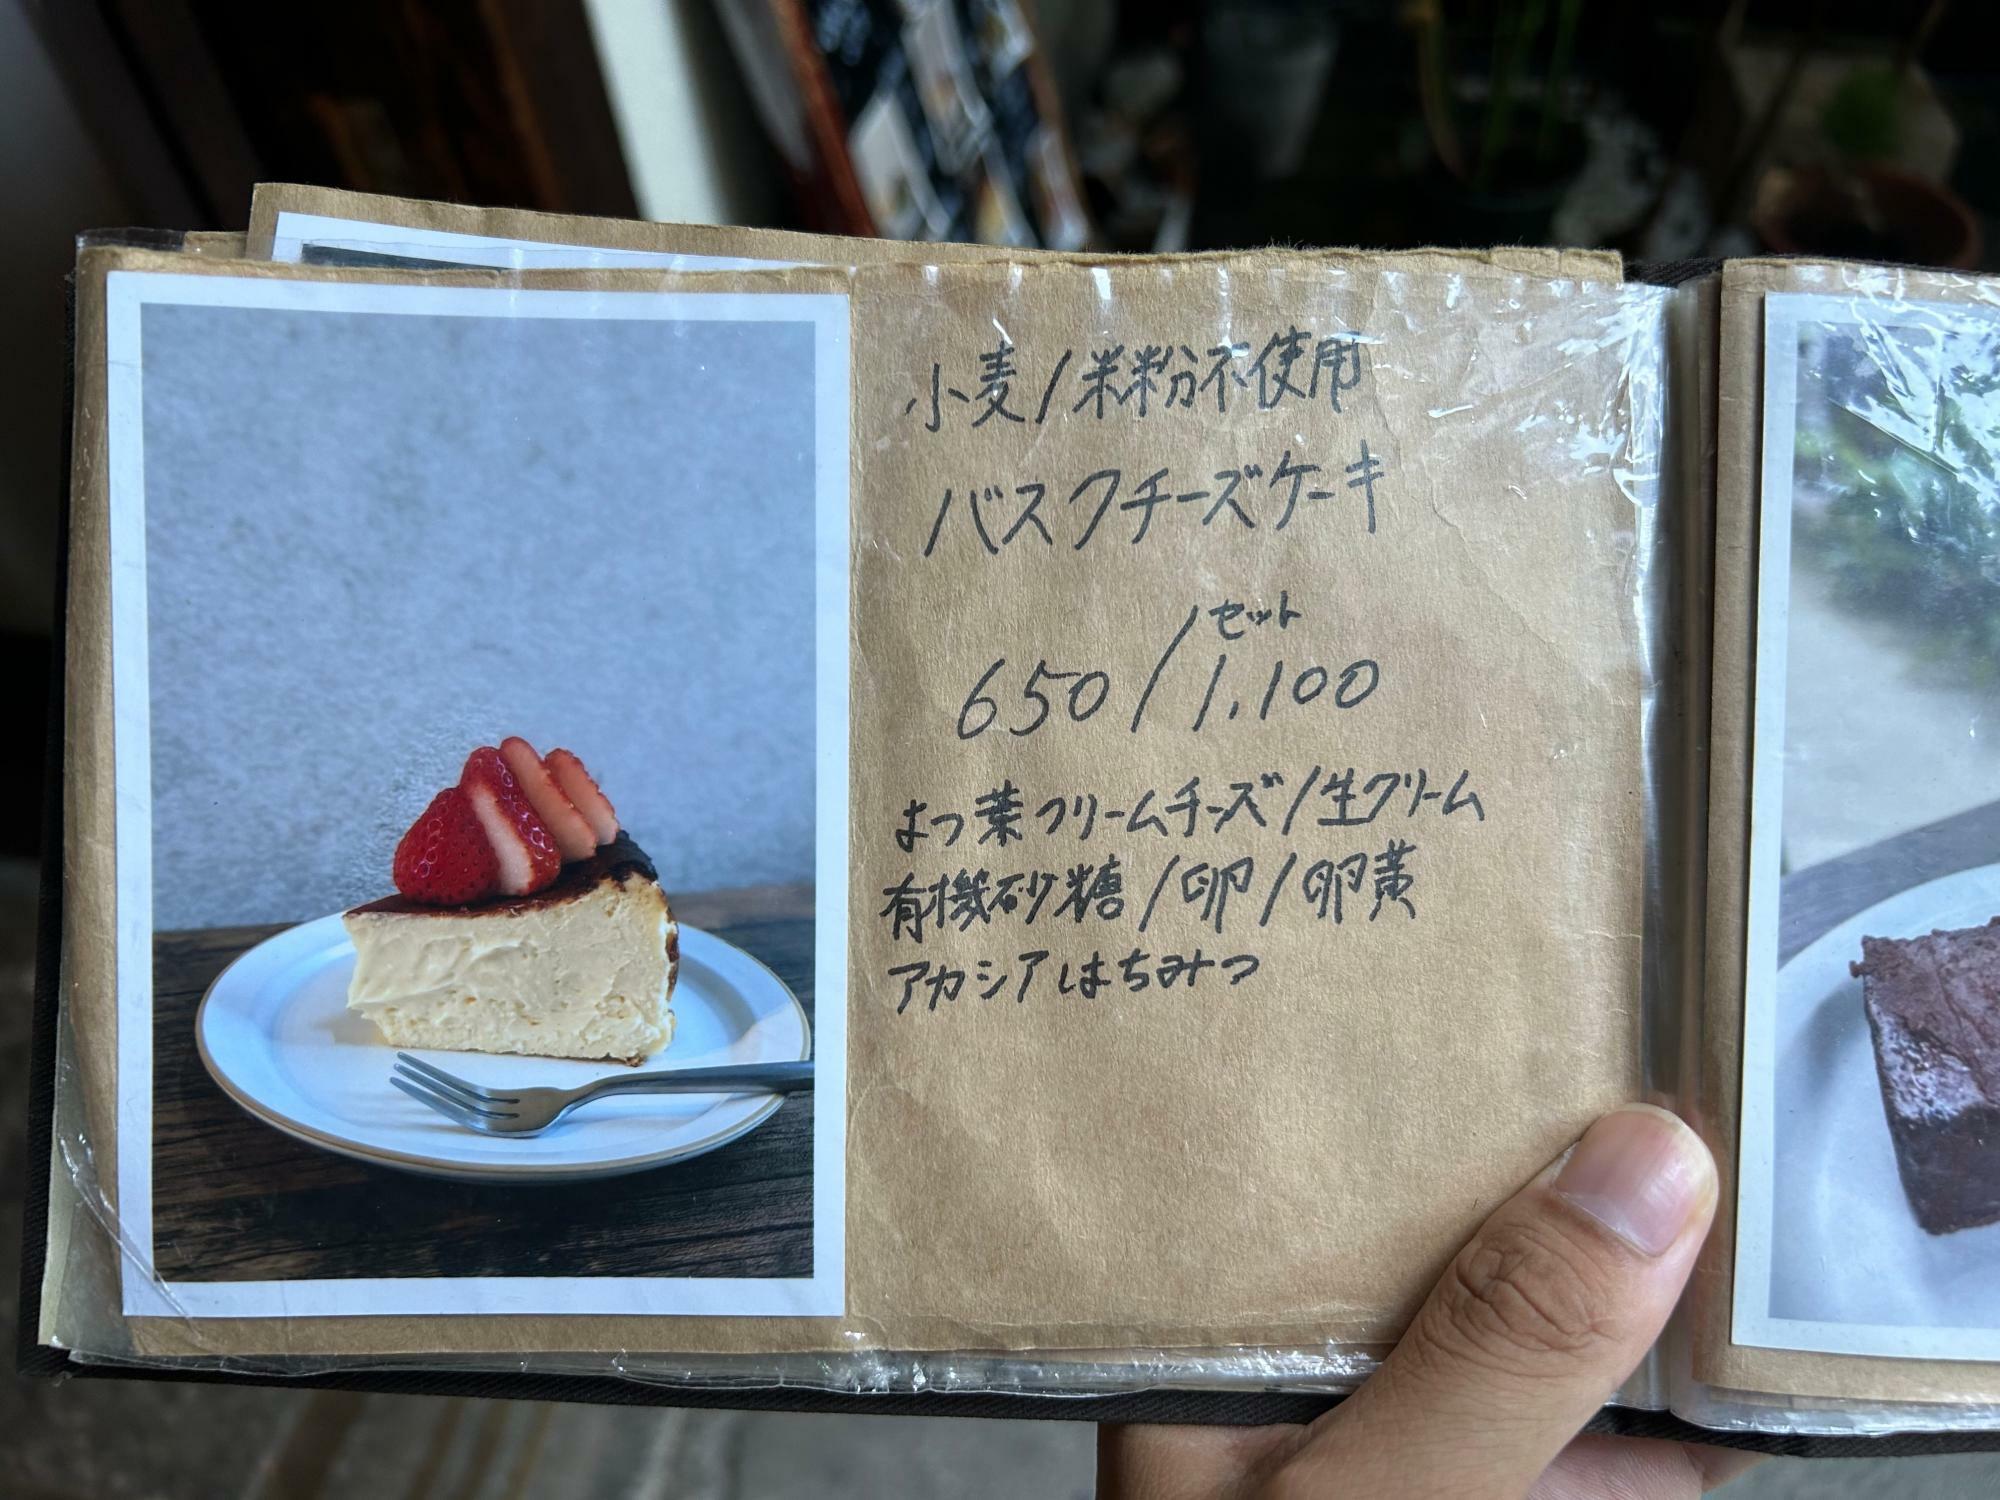 小麦/米粉不使用
バスクチーズケーキ
セット
650/1,100
よつ葉クリームチーズ/生クリーム
有機砂糖/卵/卵黄
アカシアはちみつ